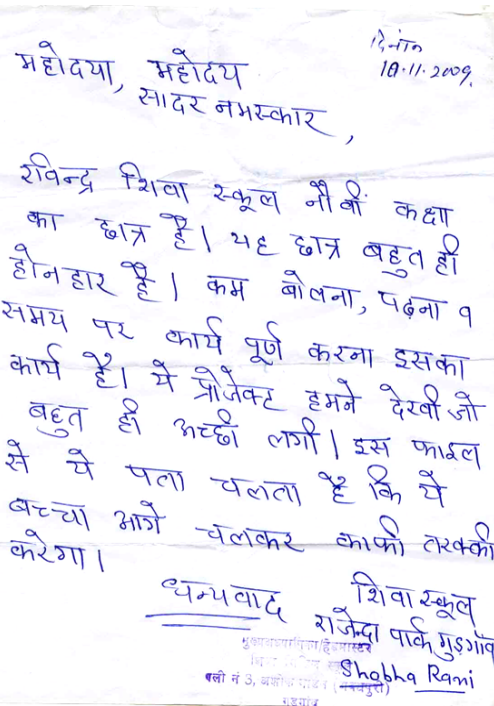 दिनांक
10.11.2009.
महोदया, महोदय
सादर नमस्कार,
रविन्द्र शिवा स्कूल नौवीं कक्षा
का छात्र है। यह छात्र बहुत ही
होनहार है। कम बोलना, पढ़ना व
समय पर कार्य पूर्ण करना इसका
कार्य है। ये प्रोजेक्ट हमने देखी जो
बहुत ही अच्छी लगी। इस फाइल
से ये पता चलता है कि ये
बच्चा आगे चलकर काफी तरक्की
करेगा।
धन्यवाद शिवा स्कूल
राजेन्द्रा पार्क गुड़गाँव
Shobha Rani
गली नं 3,
गुड़गांव